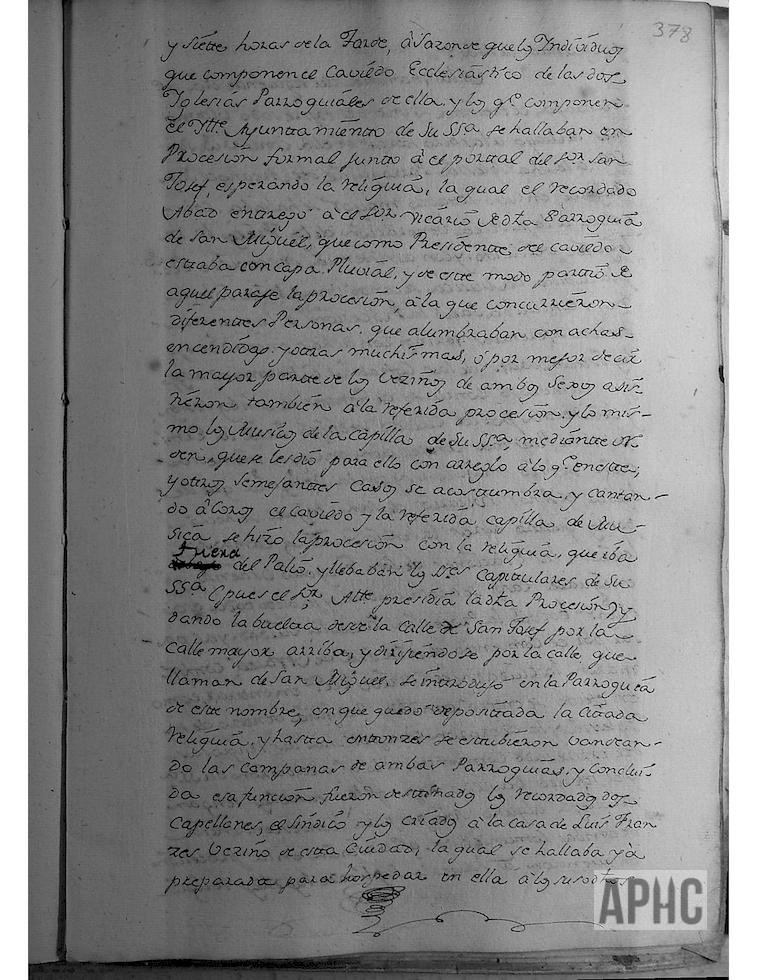 378
y siette horas de la Tarde, â sazon de que los Individuos
que componen el Cavildo Ecclesiástico de las dos
Iglesias Parroquiáles de ella, y los q.e componen
el Ytt.e Ayuntamiento de Su SS.a se hallaban en
Procesion formal junto â el portal del S.or San
Josef, esperando la reliquia, la qual el recordado
Abad entregó â el S.or Vicário de dha Parroquia
de San Miguel, que como Presidente del Cavildo
estaba con capa Pluviál, y de este modo partió de
aquel paraje la procesion, â la que concurriéron
diferentes Personas, que alumbraban con achas
encendidas, y otras muchisimas, ó por mejor decir
la mayor parte de los Vezinos de ambos sexos asis-
tiéron también â la referida procesion, y lo mis-
mo los Musicos de la Capilla de Su SS.a, mediante or-
den, que se les dió para ello con arreglo â lo q.e en este,
y otros semejantes casos se acostumbra, y cantan-
do â Coros el Cavildo y la referida capilla de Mu-
sica, se hizo la procesion con la reliquia, que iba
fuera
del Pálio, y llebaban los S.res Capitulares de Su
SS.a (pues el S.or Att.e presidia la dha Procesion) y
dando la buelta desde la Calle de San Josef por la
calle mayor arriba, y dirijiendose por la calle, que
llaman de San Miguel, se introdujo en la Parroquia
de este nombre, en que quedó depositada la citada
reliquia, y hasta entonzes se estubieron vantean-
do las Campanas de ambas Parroquias, y conclui-
da esa función fueron destinados los recordados dos
Capellones, el Sindico y los criados â la casa de Luis Fran
zes Vezino de esta Ciudad, la qual se hallaba yá
preparada para hospedar en ella â los susodhos
APHC